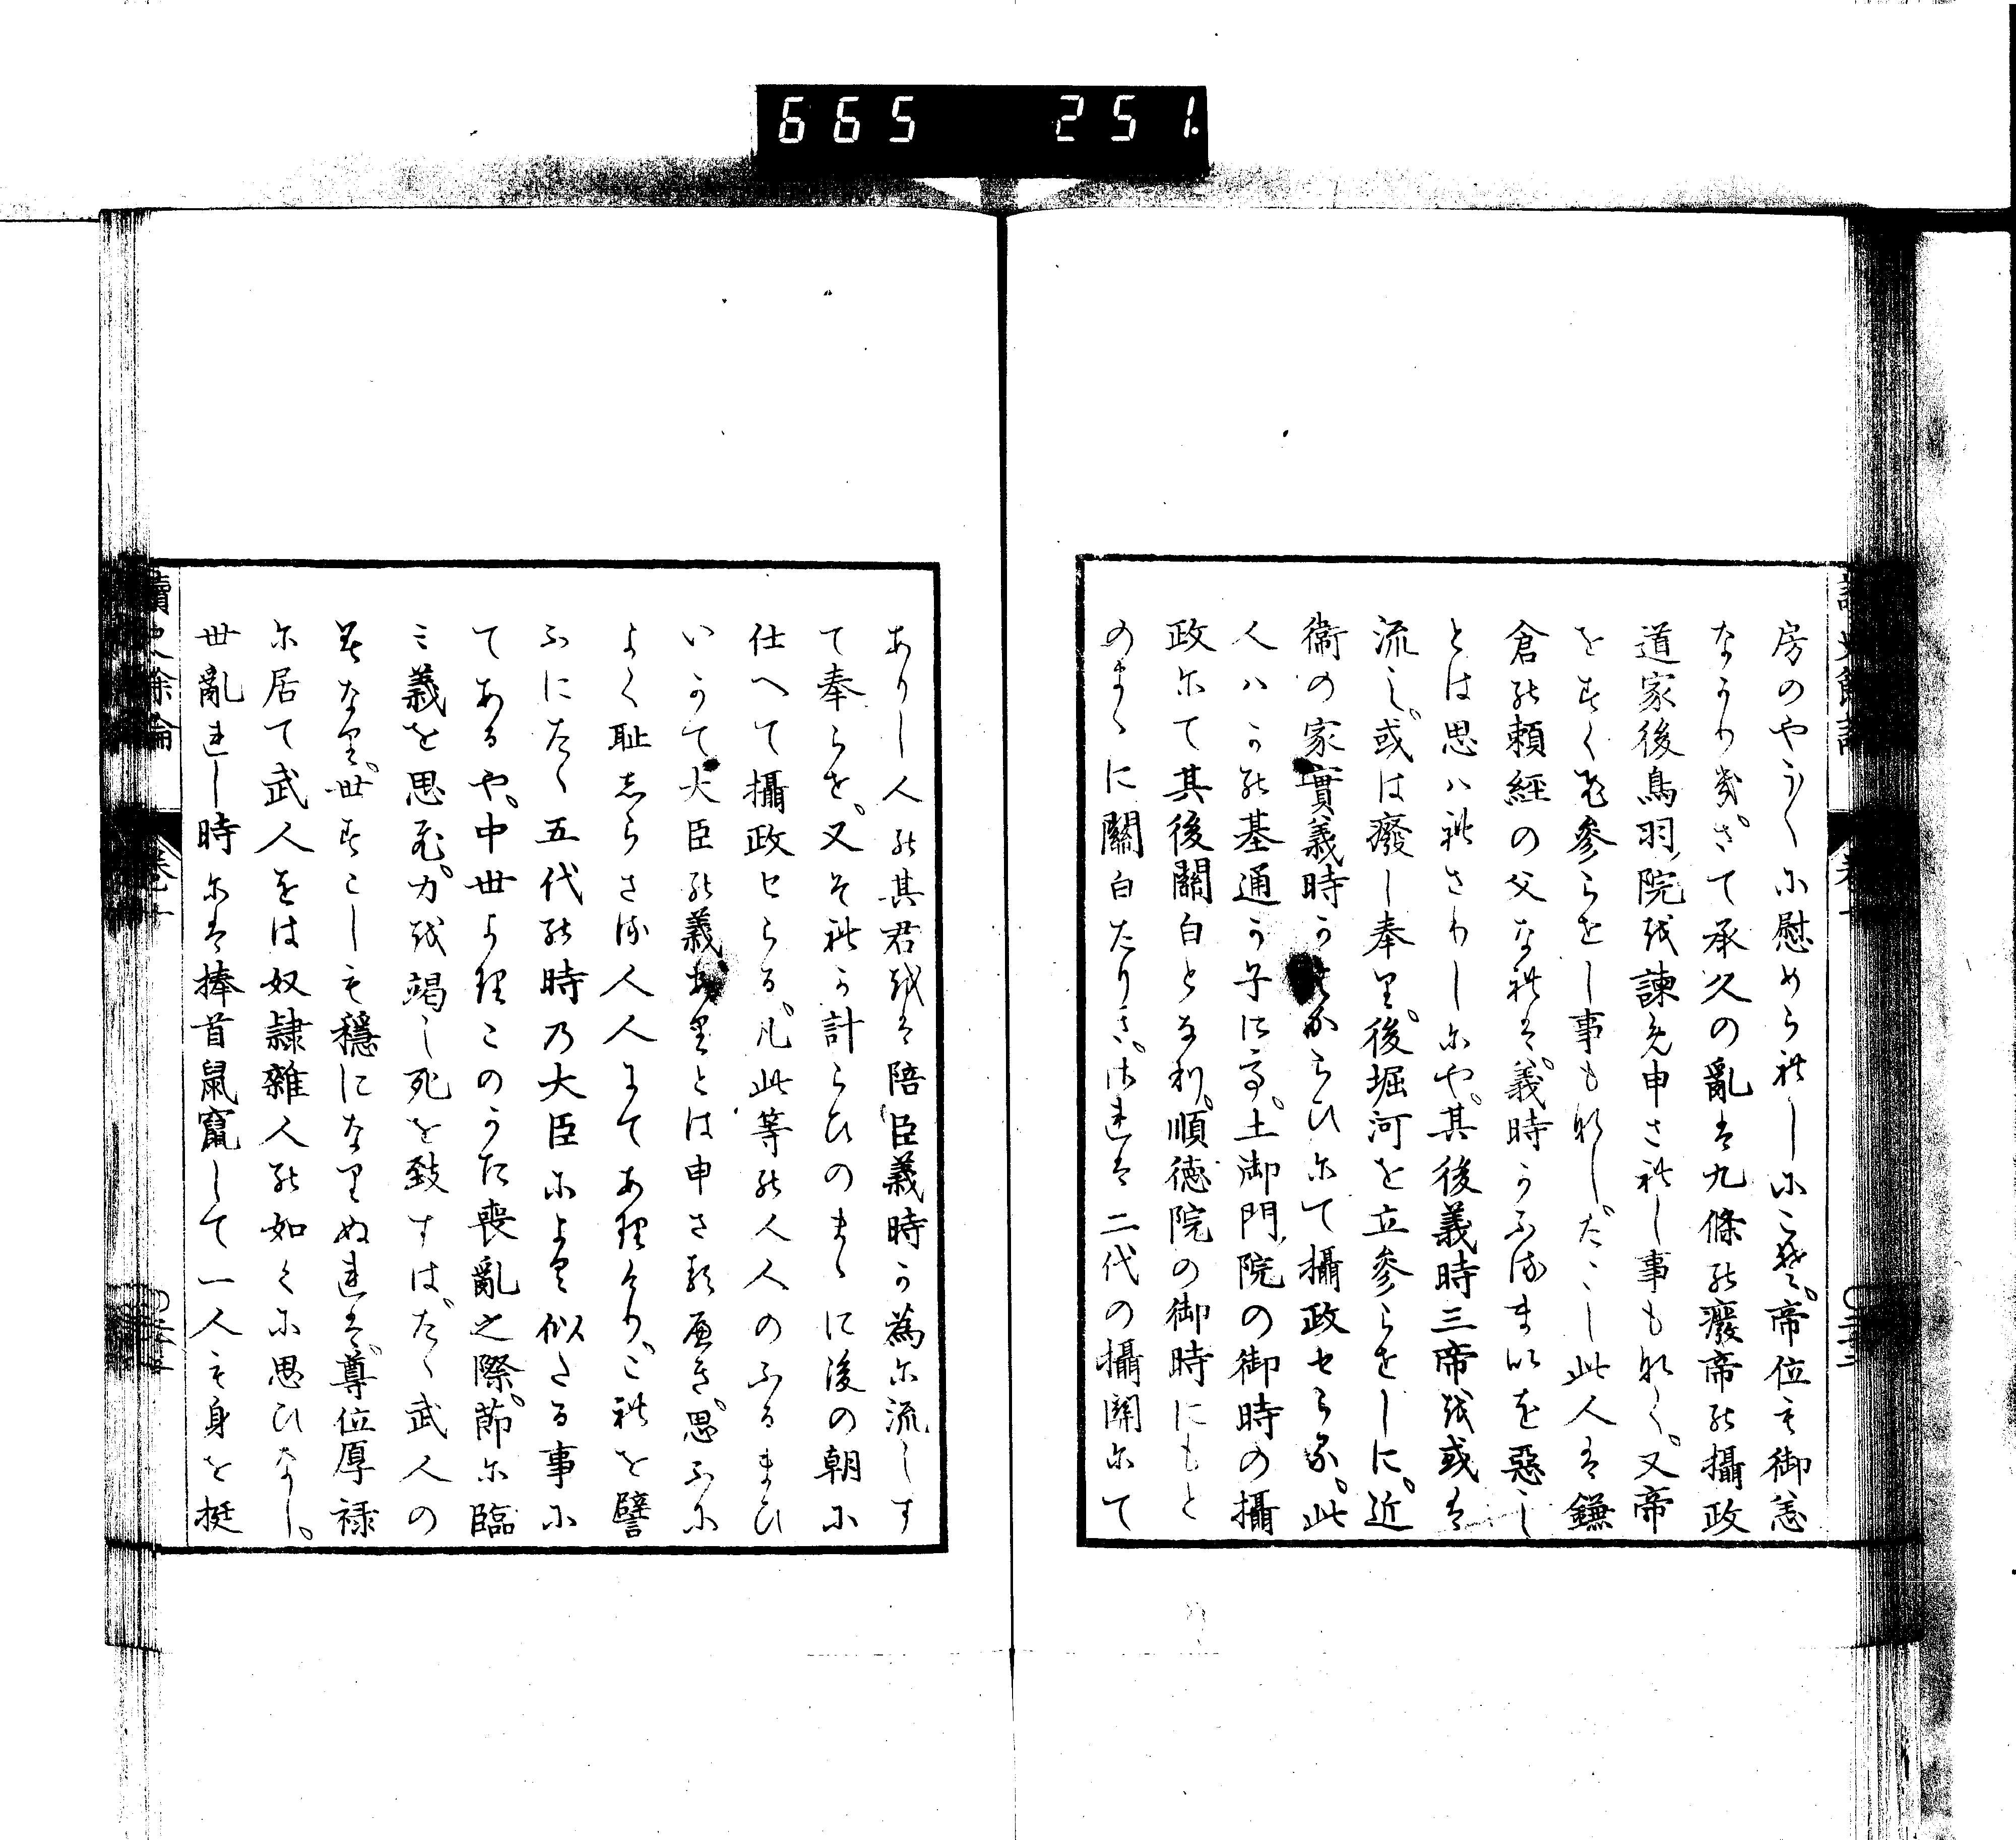 665 251.
房のやうやうに慰められしにこそ。帝位も御恙
なかりき。さて承久の亂は九條の癈帝の攝政
道家後鳥羽院を諫め申されし事もなく。又帝
をたすく参らせし事もなし。たゝし此人は鎌
倉の頼經の父なれは。義時かふるまひを惡し
とは思ハれさりしにや。其後義時三帝を或は
流し。或は癈し奉り。後堀河を立参らせしに。近
衞の家實義時かはからひにて攝政せらる。此
人ハかの基通か子にて。土御門院の御時の攝
政にて其後關白となり。順徳院の御時にもと
のまゝに關白たりき。されは二代の攝關にて
ありし人の其君をは陪臣義時か為に流しす
て奉らせ。又それか計らひのまゝに後の朝に
仕へて攝政せらる。凡此等の人人のふるまひ
いかて大臣の義ありとは申さるへき。思ふに
よく恥しらさる人人にてありけり。これを譬
ふにたゝ五代の時の大臣によく似たる事に
てあるや。中世よりこのかた喪亂之際。節に臨
ミ義を思ひ。力を竭し死を致すはたゝ武人の
みなり。世すこしも穩になりぬれは。尊位厚禄
に居て武人をは奴隷雜人の如くに思ひなし。
世亂れし時には捧首鼠竄して一人も身を挺
讀史餘論